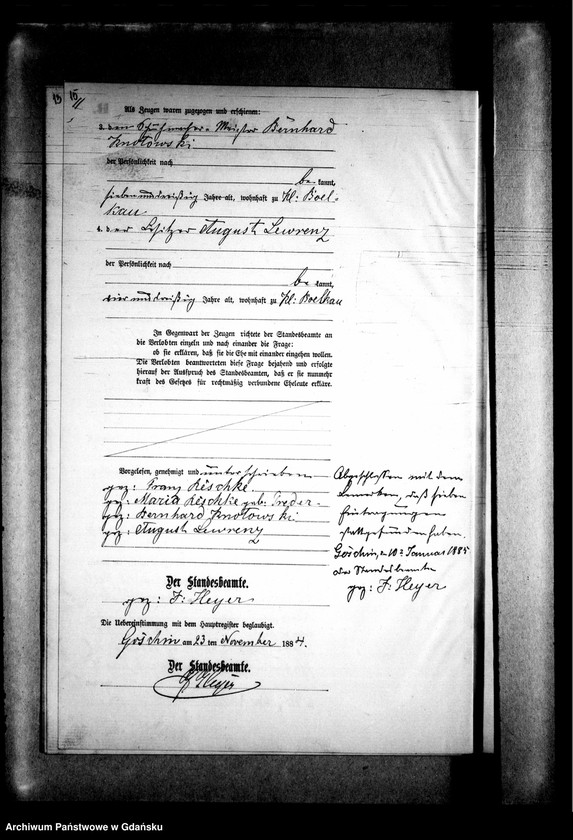 13 15/11
Als Zeugen waren zugezogen und erschienen:
3. dem Schuhmacher-Meister Bernhard
Knotowski
der Persönlichkeit nach
be kannt,
siebenunddreißig Jahre alt, wohnhaft zu Kl: Boel-
kau
4. der Besitzer August Lewrenz
der Persönlichkeit nach
be kannt,
vierunddreißig Jahre alt, wohnhaft zu Kl: Boelkau
In Gegenwart der Zeugen richtete der Standesbeamte an
die Verlobten einzeln und nach einander die Frage:
ob sie erklären, daß sie die Ehe mit einander eingehen wollen.
Die Verlobten beantworteten diese Frage bejahend und erfolgte
hierauf der Ausspruch des Standesbeamten, daß er sie nunmehr
kraft des Gesetzes für rechtmäßig verbundene Eheleute erkläre.
Vorgelesen, genehmigt und unterschrieben
gez: Franz Reschke
gez: Maria Reschke geb: Treder
gez: Bernhard Knotowski
gez: August Lewrenz
Der Standesbeamte.
gez: F: Heyer
Die Uebereinstimmung mit dem Hauptregister beglaubigt.
Goschin am 23 ten November 1884.
Der Standesbeamte.
F Heyer
Abgeschlossen mit dem
Bemerken, daß sieben
Eintragungen
stattgefunden haben.
Goschin, 10 Januar 1885
der Standesbeamte
gez: F: Heyer
Archiwum Państwowe w Gdańsku